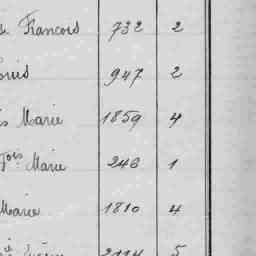 François 732 2
Louis 947 2
Marie 1859 4
Fois Marie 246 1
Marie 1810 4
5